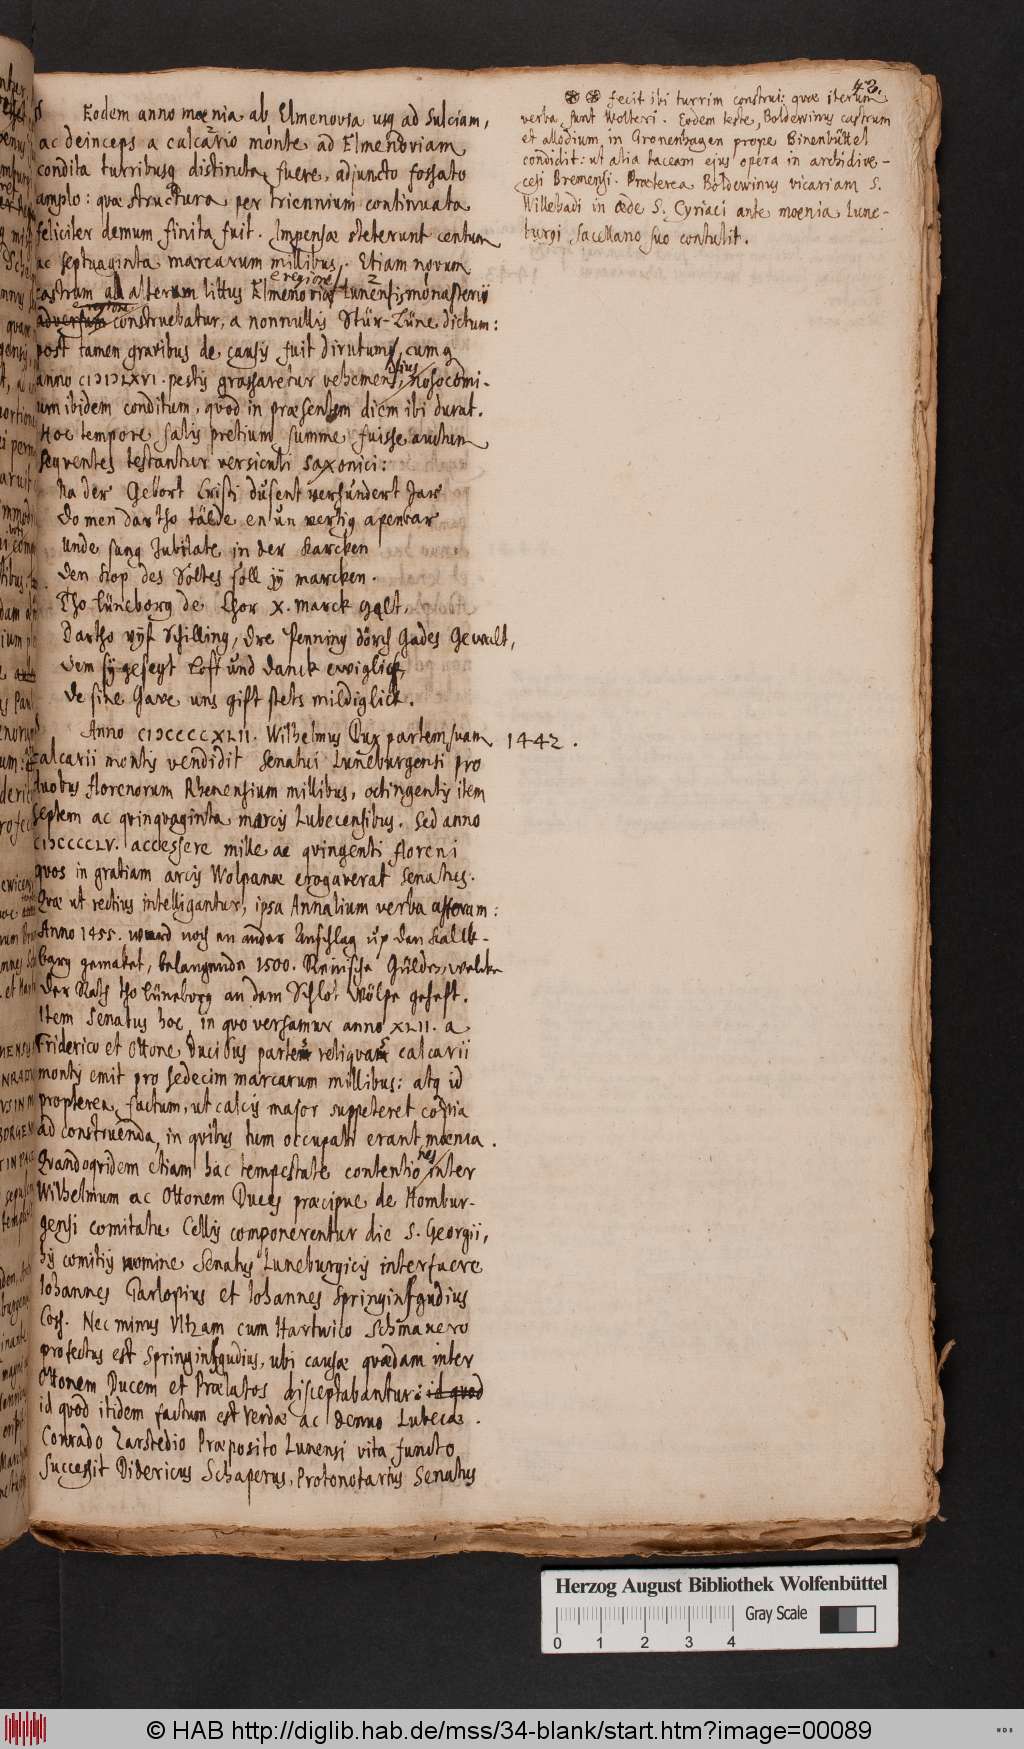 43.
Eodem anno mœnia ab Elmenovia usq ad Sulciam,
ac deinceps a calcario monte ad Elmenoviam
condita turribusq distincta fuere, adjuncto fossato
amplo: quæ structura per triennium continuata
feliciter demum finita fuit. Impensæ steterunt centum
ac septuaginta marcarum millibus. Etiam novum
castrum ad alterum littus Elmenoviæ e regione Lunensis monasterii
adversum construebatur, a nonnullis Stür-Lüne dictum:
post tamen gravibus de causis fuit dirutum, cumq
anno CIƆIƆLXVI. pestis grassaretur vehementius, nosocomi-
um ibidem conditum, quod in præsentem diem ibi durat.
Hoc tempore salis pretium summe fuisse auctum
sequentes testantur versiculi Saxonici:
Na der Gebort Cristi dusent verhundert Jar
Do men dartho tälde en un vertig apenbar
Unde sang Jubilate in der Karcken
Den Kop des Soltes soll jy marcken.
Tho Lüneborg de Chor X. marck galt,
Dartho vyf Schilling, dre Penning dörch Gades Gewalt,
Dem sy geseyt Loff und Danck ewiglick,
De sine Gave uns gift stets mildiglick.
Anno CIƆCCCCXLII. Wilhelmus Dux partem suam
1442.
calcarii montis vendidit Senatui Luneburgensi pro
duobus florenorum Rhenensium millibus, octingentis item
septem ac quinquaginta marcis Lubecensibus. Sed anno
CIƆCCCCLV. accessere mille ac quingenti floreni
quos in gratiam arcis Wolpanæ erogaverat Senatus.
Quæ ut rectius intelligantur, ipsa Annalium verba afferam:
Anno 1455. ward noch en ander Anschlag up den Kalck-
barg gemaket, belangende 1500. Reinische Gülden, welcke
der Rath tho Lüneborg an dem Schlot Wölpe gehaft.
Item Senatus hoc, in quo versamur anno XLII. a
Friderico et Ottone Ducibus partes reliquas calcarii
montis emit pro sedecim marcarum millibus: atq id
propterea factum, ut calcis major suppeteret copia
ad construenda, in quibus tum occupati erant, mœnia.
Quandoquidem etiam hac tempestate contentiones inter
Wilhelmum ac Ottonem Duces præcipue de Hombur-
gensi comitatu Cellis componerentur die S. Georgii,
his comitiis nomine Senatus Luneburgicis interfuere
Iohannes Garlopius et Iohannes Springinsgudius
Coss. Nec minus Ultzam cum Hartwico Schmakero
profectus est Springinsgudius, ubi causæ quædam inter
Ottonem Ducem et Prælatos disceptabantur: id quod
id quod itidem factum est Verdæ ac denuo Lubecæ.
Conrado Zarstedio Præposito Lunensi vita functo
successit Didericus Schaperus, Protonotarius Senatus
fecit ibi turrim construi: quæ iterum
verba sunt Wolteri. Eodem teste, Boldewinus castrum
et allodium in Gronenhagen prope Binenbüttel
condidit: ut alia taceam ejus opera in archidioe-
cesi Bremensi. Præterea Boldewinus vicariam S.
Willehadi in æde S. Cyriaci ante mœnia Lune-
burgi sacellano suo contulit.
Herzog August Bibliothek Wolfenbüttel
Gray Scale
0 1 2 3 4
© HAB http://diglib.hab.de/mss/34-blank/start.htm?image=00089